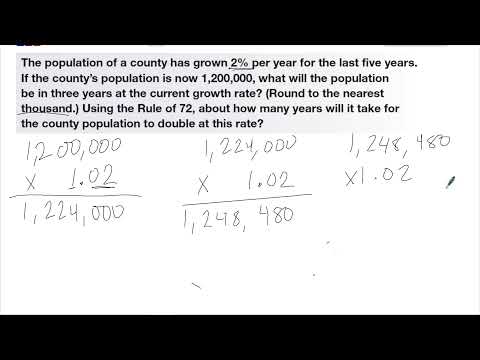 The population of a county has grown 2% per year for the last five years.
If the county's population is now 1,200,000, what will the population
be in three years at the current growth rate? (Round to the nearest
thousand.) Using the Rule of 72, about how many years will it take for
the county population to double at this rate?
1,200,000 1,224,000 1,248,480
x 1.02 x 1.02 x1.02
1,224,000 1,248,480